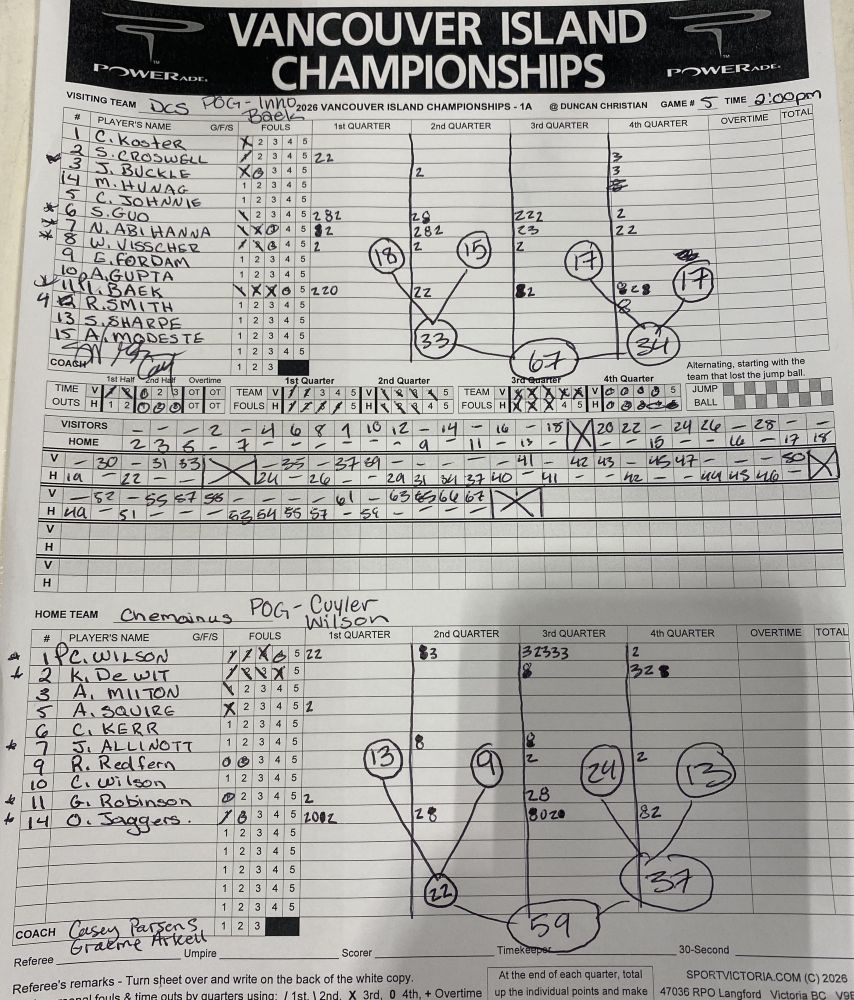 VANCOUVER ISLAND
CHAMPIONSHIPS
POWERADE.
POWERADE.
VISITING TEAM DCS POG-Inno Baek 2026 VANCOUVER ISLAND CHAMPIONSHIPS - 1A @ DUNCAN CHRISTIAN GAME # 5 TIME 2:00pm
# PLAYER'S NAME G/F/S FOULS 1st QUARTER 2nd QUARTER 3rd QUARTER 4th QUARTER OVERTIME TOTAL
1 C. Koster 2 3 4 5
2 S. CROSWELL 2 3 4 5 22 3
3 J. BUCKLE 3 4 5 2 3
14 M. HUNAG 1 2 3 4 5
5 C. JOHNNIE 1 2 3 4 5
6 S. GUO 2 3 4 5 222 2
7 N. ABIHANNA 4 5 282 23 22
8 W. VISSCHER 4 5 2 2 2
9 E. FORDAM 1 2 3 4 5 18 15 17
10 A. GUPTA 1 2 3 4 5 17
11 I. BAEK 5 220 22
R. SMITH 1 2 3 4 5
13 S. SHARPE 1 2 3 4 5
15 A. MODESTE 1 2 3 4 5 33 67 34
COACH 1 2 3
Alternating, starting with the
team that lost the jump ball.
1st Half 2nd Half Overtime 1st Quarter 2nd Quarter 3rd Quarter 4th Quarter
TIME V OT OT TEAM V 3 4 5 V 5 TEAM V V 5 JUMP
OUTS H 1 2 OT OT FOULS H 4 5 H 4 5 FOULS H 4 5 H BALL
VISITORS - - - 2 - 4 6 8 9 10 12 - 14 - 16 - 18 20 22 - 24 26 - 28 - -
HOME 2 3 6 - 7 - - - - - - 9 - 11 - 13 - - - 15 - - 16 - 17 18
V - 30 - 31 33 - 35 - 37 39 - - - - - 41 - 42 43 - 45 47 - - - 50
H 19 - 22 - - 24 - 26 - - 29 31 34 37 40 - 41 - - 42 - - 44 45 46 -
V - 52 - 55 57 58 - - - - 61 - 63 65 66 67
H 49 - 51 - - - 53 54 55 57 - 59 - - - -
V
H
V
H
HOME TEAM Chemainus POG- Cuyler Wilson
# PLAYER'S NAME G/F/S FOULS 1st QUARTER 2nd QUARTER 3rd QUARTER 4th QUARTER OVERTIME TOTAL
1 C. WILSON 5 22 3 32333 2
2 K. De WIT 5 8 32
3 A. MIlTON 2 3 4 5
5 A. SQUIRE 2 3 4 5 2
6 C. KERR 1 2 3 4 5
7 J. ALLINOTT 1 2 3 4 5 8 8
9 R. Redfern 3 4 5 13 9 2 24 2 13
10 C. Wilson 1 2 3 4 5
11 G. Robinson 2 3 4 5 2 28
14 O. Jaggers. 3 4 5 2002 28 82
1 2 3 4 5
1 2 3 4 5
1 2 3 4 5
1 2 3 4 5 22 37
1 2 3 4 5
COACH Casey Parsens 1 2 3 59
Graeme Arkell
Referee Umpire Scorer Timekeeper 30-Second
Referee's remarks - Turn sheet over and write on the back of the white copy.
At the end of each quarter, total
up the individual points and make
SPORTVICTORIA.COM (C) 2026
fouls & time outs by quarters using: / 1st, \ 2nd, X 3rd, 0 4th, + Overtime
47036 RPO Langford Victoria BC